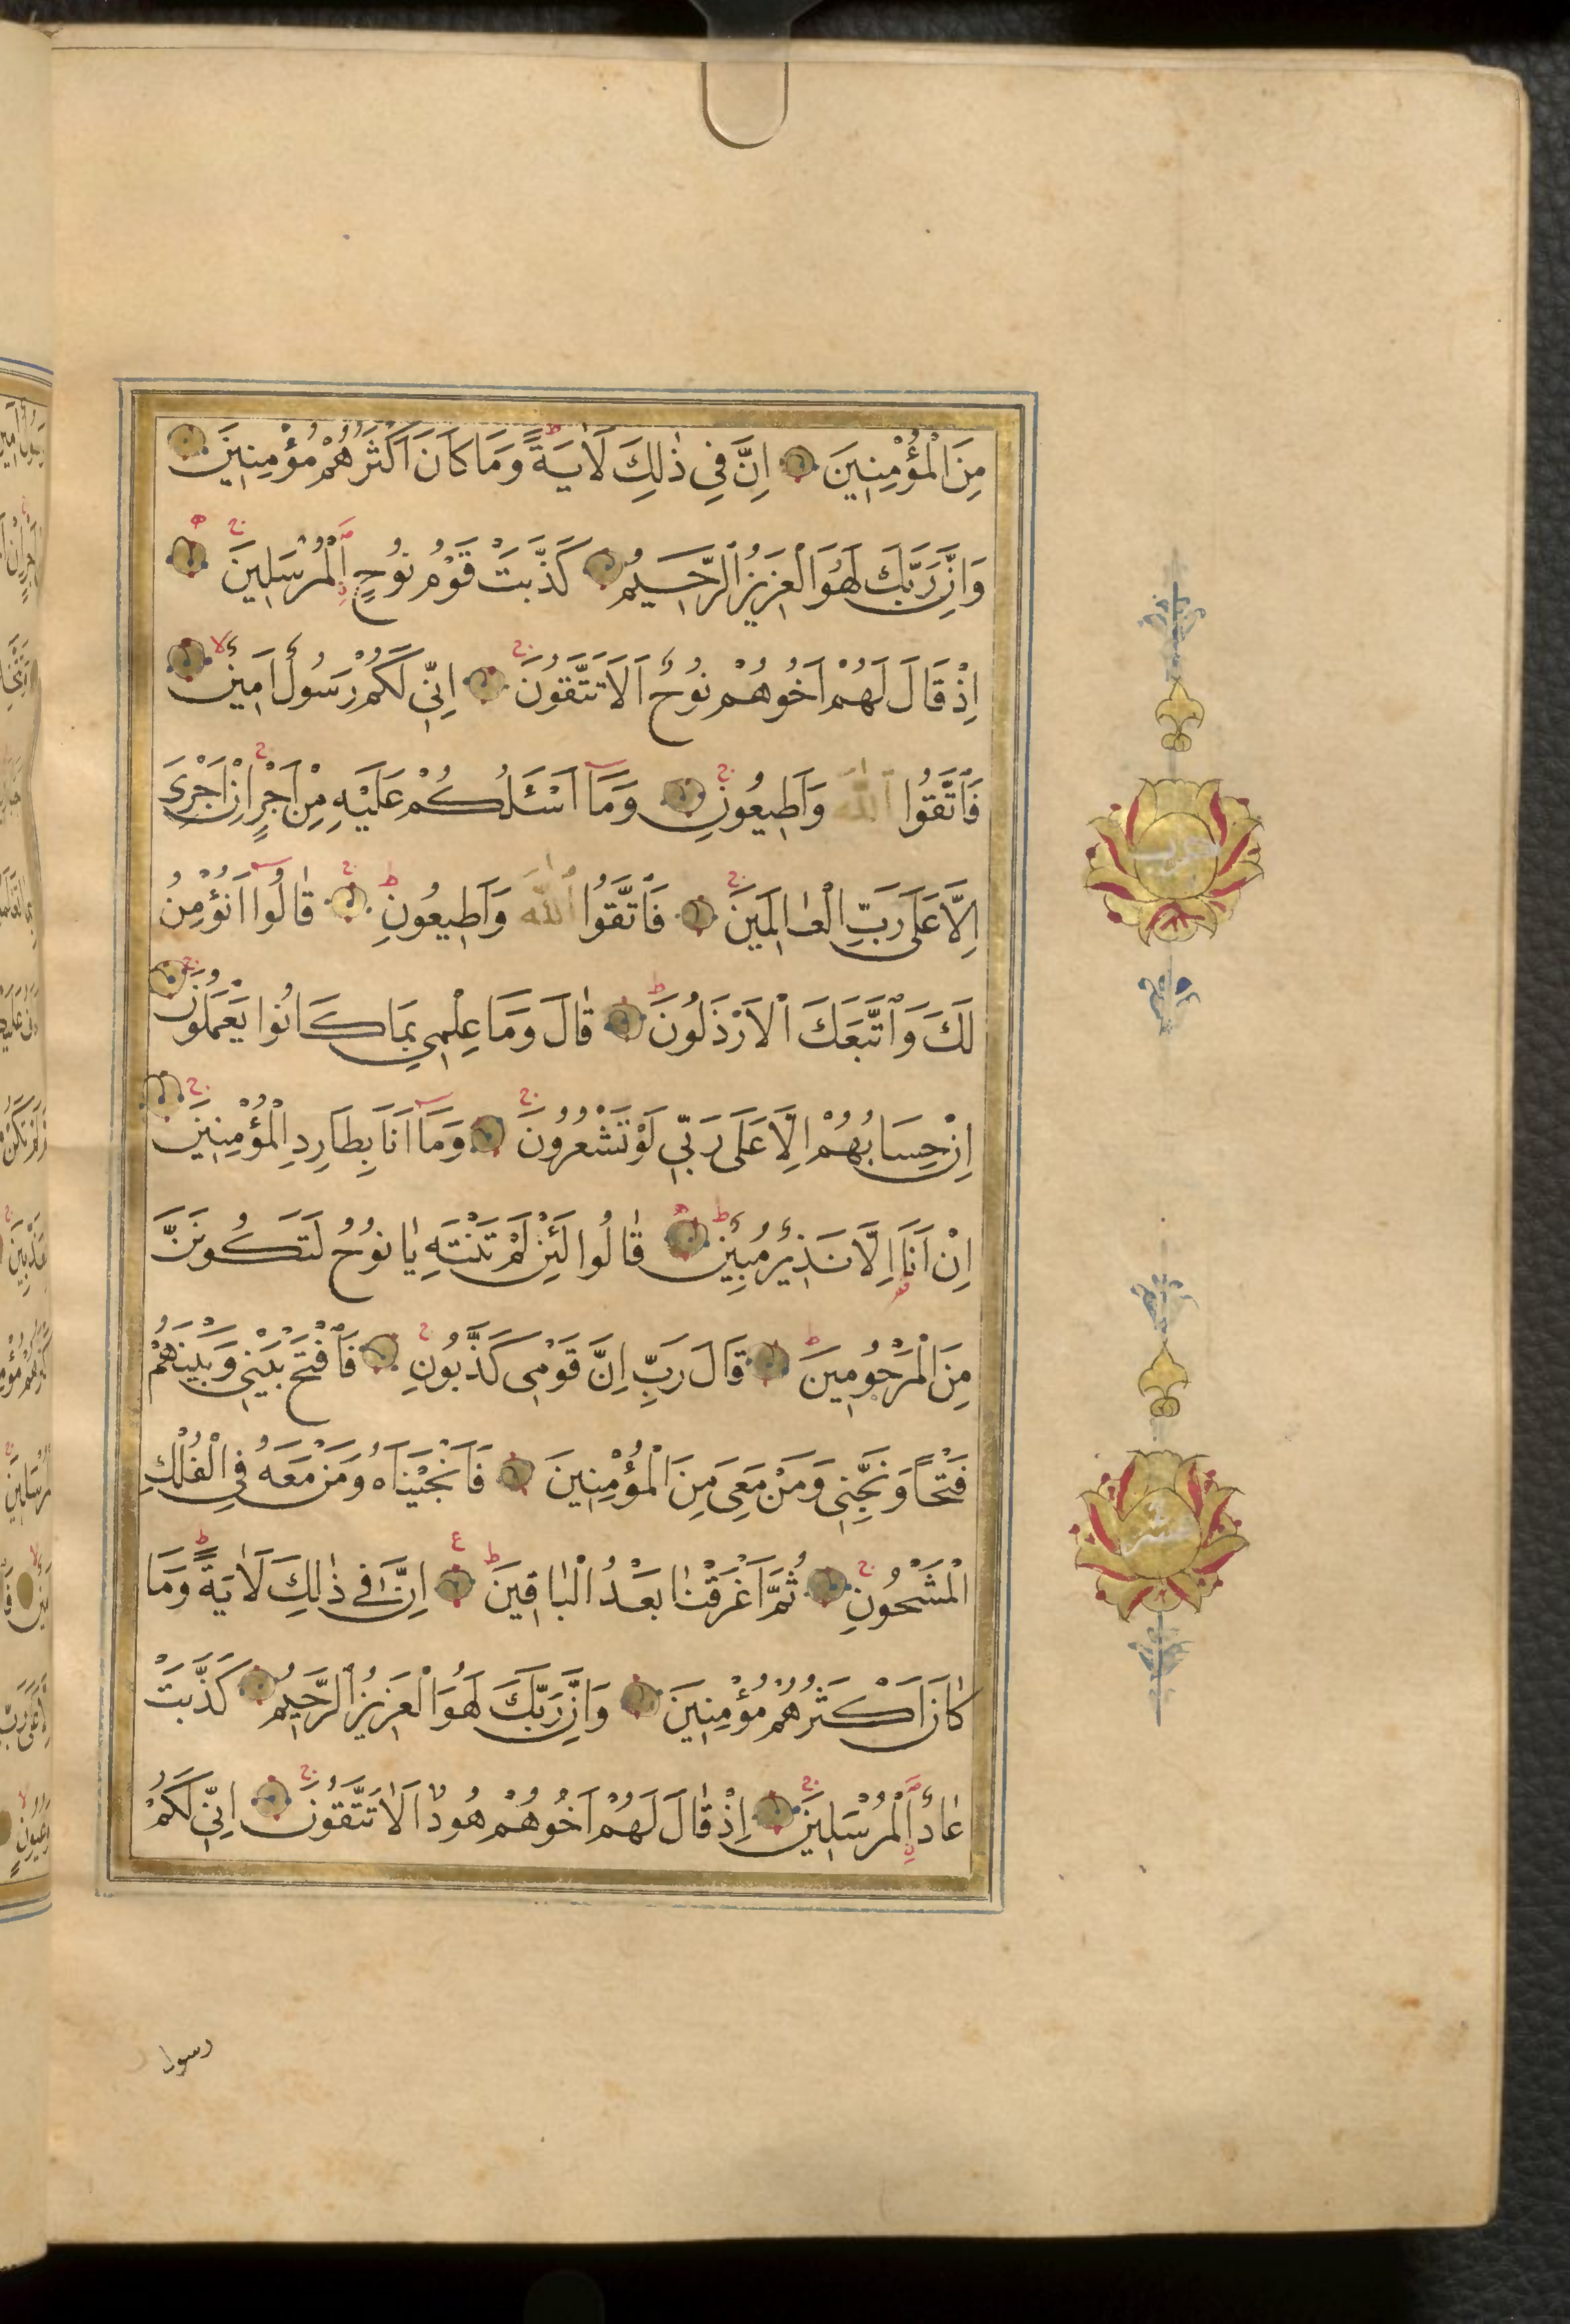 مِنَ الْمُؤْمِنِينَ اِنَّ فِي ذٰلِكَ لَاٰيَةً وَمَا كَانَ اَكْثَرُهُمْ مُؤْمِنِينَ
وَاِنَّ رَبَّكَ لَهُوَ الْعَزِيزُ الرَّحِيمُ كَذَّبَتْ قَوْمُ نُوحٍ الْمُرْسَلِينَ
اِذْ قَالَ لَهُمْ اَخُوهُمْ نُوحٌ اَلَا تَتَّقُونَ اِنِّي لَكُمْ رَسُولٌ اَمِينٌ
فَاتَّقُوا اللّٰهَ وَاَطِيعُونِ وَمَا اَسْئَلُكُمْ عَلَيْهِ مِنْ اَجْرٍ اِنْ اَجْرِيَ
اِلَّا عَلَى رَبِّ الْعَالَمِينَ فَاتَّقُوا اللّٰهَ وَاَطِيعُونِ قَالُوا اَنُؤْمِنُ
لَكَ وَاتَّبَعَكَ الْاَرْذَلُونَ قَالَ وَمَا عِلْمِي بِمَا كَانُوا يَعْمَلُونَ
اِنْ حِسَابُهُمْ اِلَّا عَلَى رَبِّي لَوْ تَشْعُرُونَ وَمَا اَنَا بِطَارِدِ الْمُؤْمِنِينَ
اِنْ اَنَا اِلَّا نَذِيرٌ مُبِينٌ قَالُوا لَئِنْ لَمْ تَنْتَهِ يَا نُوحُ لَتَكُونَنَّ
مِنَ الْمَرْجُومِينَ قَالَ رَبِّ اِنَّ قَوْمِي كَذَّبُونِ فَافْتَحْ بَيْنِي وَبَيْنَهُمْ
فَتْحًا وَنَجِّنِي وَمَنْ مَعِيَ مِنَ الْمُؤْمِنِينَ فَاَنْجَيْنَاهُ وَمَنْ مَعَهُ فِي الْفُلْكِ
الْمَشْحُونِ ثُمَّ اَغْرَقْنَا بَعْدُ الْبَاقِينَ اِنَّ فِي ذٰلِكَ لَاٰيَةً وَمَا
كَانَ اَكْثَرُهُمْ مُؤْمِنِينَ وَاِنَّ رَبَّكَ لَهُوَ الْعَزِيزُ الرَّحِيمُ كَذَّبَتْ
عَادٌ الْمُرْسَلِينَ اِذْ قَالَ لَهُمْ اَخُوهُمْ هُودٌ اَلَا تَتَّقُونَ اِنِّي لَكُمْ
رسول